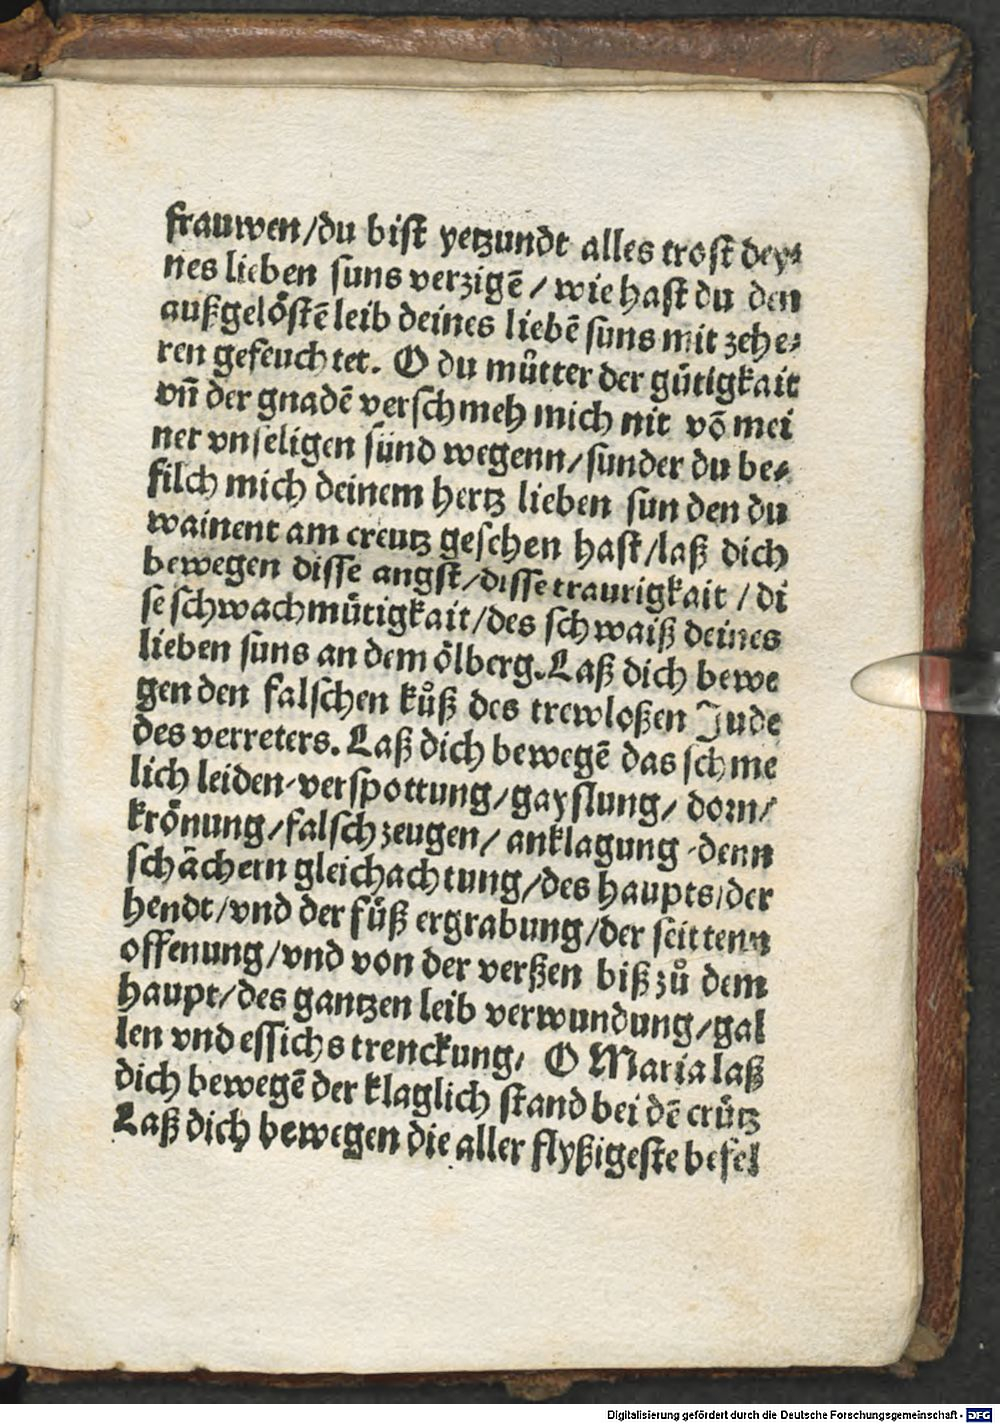 frauwen/du bist yetzundt alles trost dey⸗
nes lieben suns verzigē/ wie hast du den
außgelöstē leib deines liebē suns mit zehe⸗
ren gefeuchtet. O du můtter der gütigkait
vñ der gnadē verschmeh mich nit võ mei
ner vnseligen sünd wegenn/sunder du be⸗
filch mich deinem hertz lieben sun den du
wainent am creutz gesehen hast/laß dich
bewegen disse angst/disse traurigkait/di
se schwachmütigkait/des schwaiß deines
lieben suns an dem ölberg. Laß dich bewe
gen den falschen kůß des trewloßen Jude
des verreters. Laß dich bewegē das schme
lich leiden/verspottung/gayslung/ dorn/
krönung/falsch zeugen/ anklagung/denn
schächern gleichachtung/des haupts/der
hendt/vnd der füß ergrabung/der seittenn
offenung/vnd von der verßen biß zů dem
haupt/des gantzen leib verwundung/gal
len vnd essichs trenckung/ O Maria laß
dich bewegē der klaglich stand bei dē crütz
Laß dich bewegen die aller flyßigeste befel
Digitalisierung gefördert durch die Deutsche Forschungsgemeinschaft - DFG